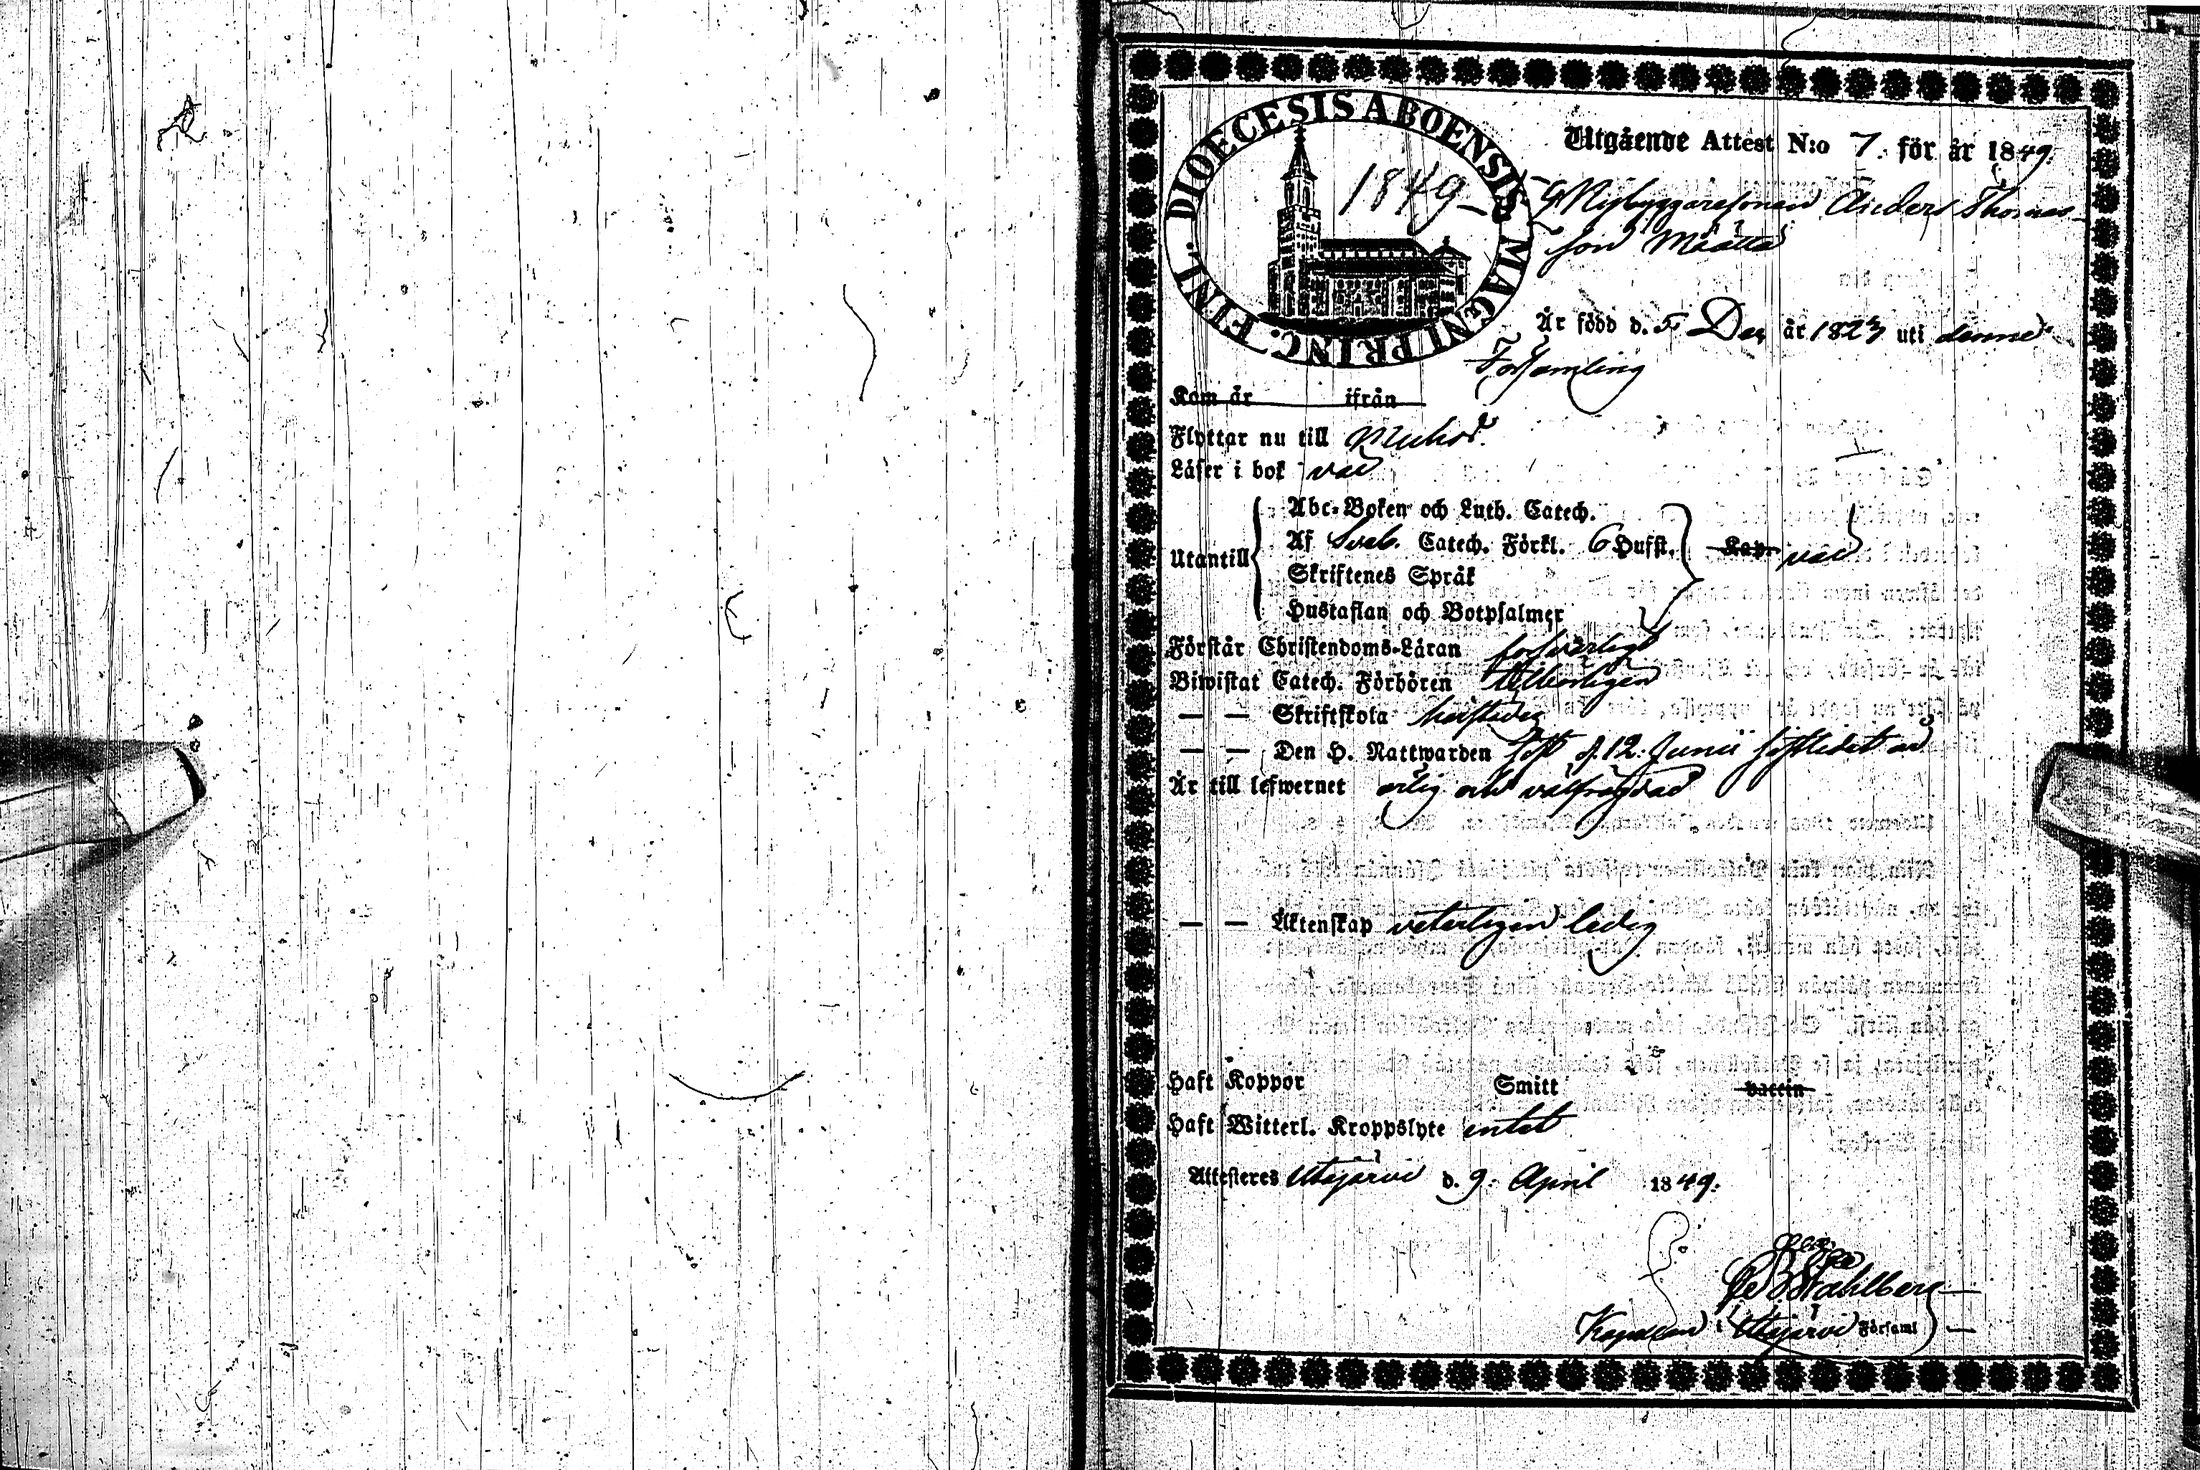 DIOECESIS ABOENSIS MAGNI PRINC. FINL.
1849
Utgående Attest N:o 7. för år 1849.
Nybyggaresonen Anders Thomas-
son Määttä
Är född d. 5 Dec. år 1823 uti denne
Församling
Kom år ifrån
Flyttar nu till Muhos.
Läser i bok väl
Utantill
Abc-Boken och Luth. Catech.
Af Sveb. Catech. Förkl. 6 Hufst. Kap. väl
Skriftenes Språk
Hustaflan och Botpsalmer
Förstår Christendoms-Läran försvarligt
Biwistat Catech. Förhören tillbörligen
— — Skriftskola
— — Den H. Nattwarden sist d. 12. Junii sistledit år
Är till lefwernet ärlig och välfrägdad
— — Äktenskap veterligen ledig
Haft Koppor Smitt vaccin
Haft Witterl. Kroppslyte intet
Attesteres Utajärvi d. 9. April 1849.
Stahlberg
Kapellan i Utajärvi Församl